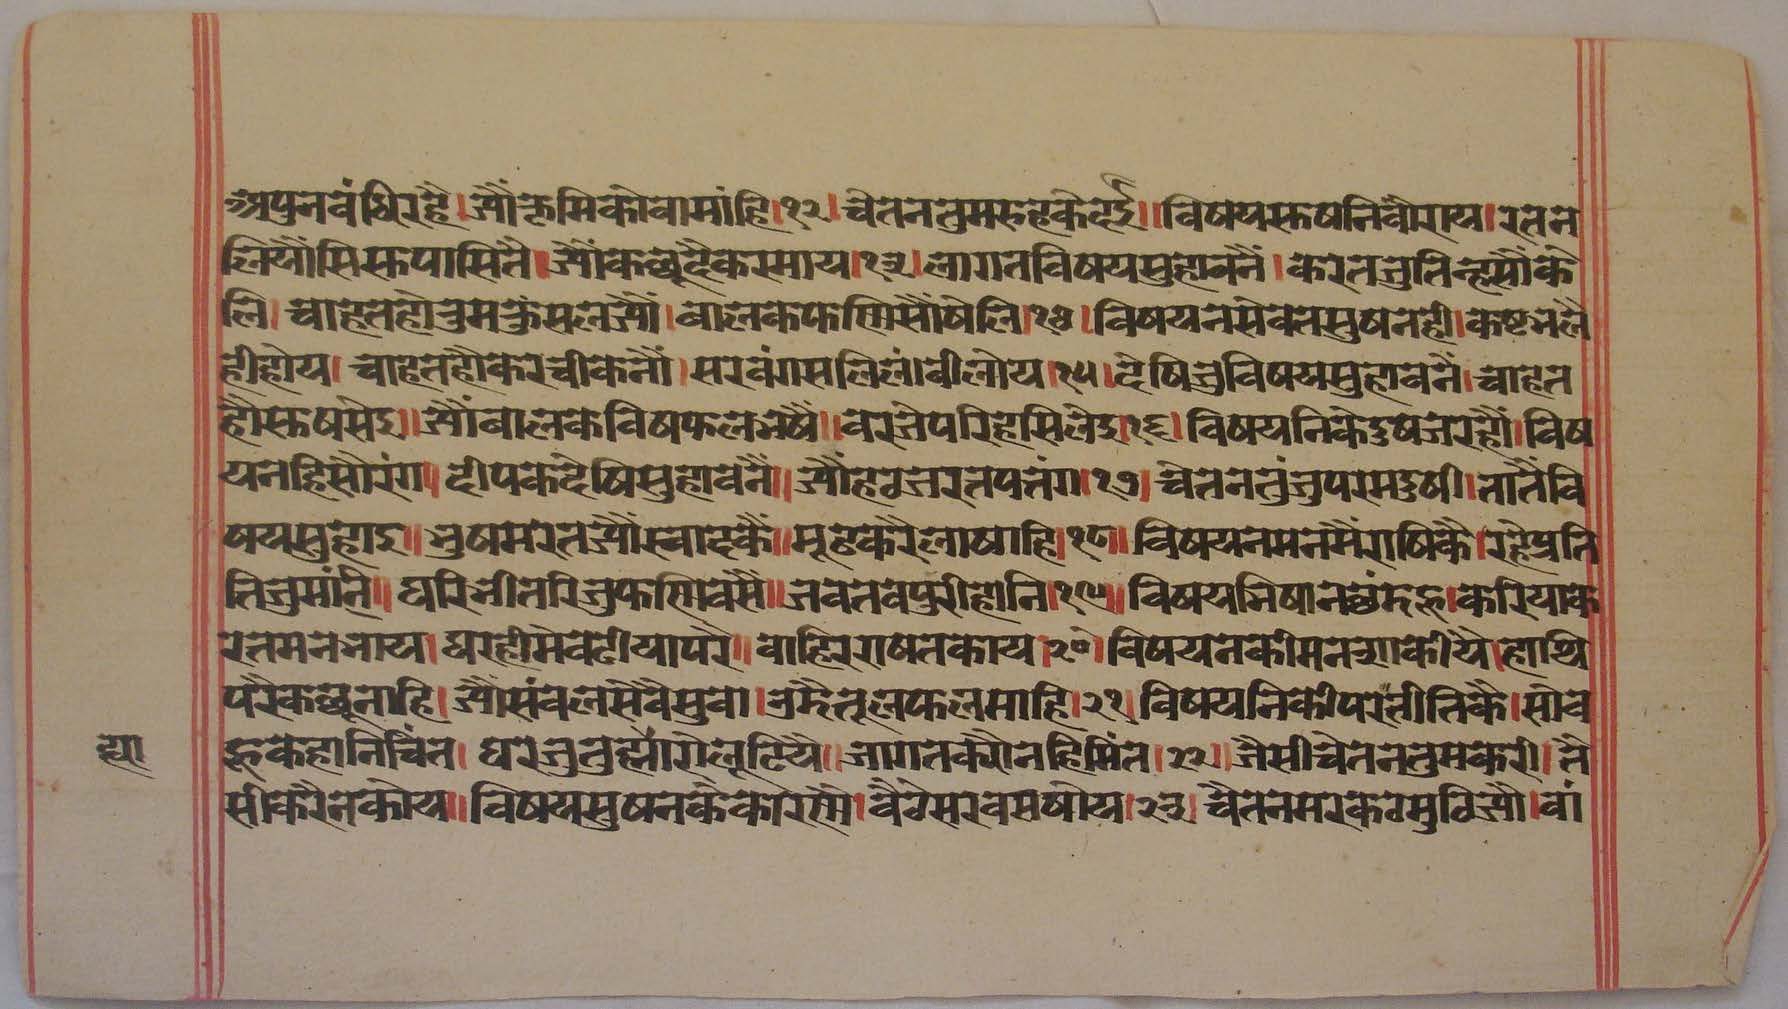 अपुनबंधिरहै। ज्यौंकृमिकोवामांहि।१२। चेतनतुमरुहकेदई॥ विषयरूषनिवौराय।रतन
लियौंसिरूपासितै। ज्यौंकछूदैकरमाय।१३। लागतविषयसुहावनैं। करतजुतिन्हसौंके
लि। चाहतहौतुमकुंसलज्यौं। बालकफणिसौंषेलि।१४। विषयनसेवतसुषनही।कष्टभलै
हीहोय। चाहतहौकरचीकनौं। सरवंगसलिलंवीलोय।१५। देषिजुविषयसुहावनैं। चाहत
हौरूषसेइ॥ ज्यौंबालकविषफलभषैं॥ वरजेपरिहसिलेइ।१६। विषयनिकेदुषजरहौं।विष
यनहिसौरंग॥ दीपकदेषिसुहावनैं॥ ज्यौंहठजरतपतंग।१७। चेतनतुंजुपरमदुषी।तातैंवि
षयसुहाइ॥ भुषमरतज्यौंस्वादकैं॥ मूढकरैलाषाहि।१८॥ विषयनमनमैंराषिकै। रहेप्रति
तिजुमांनि॥ घरिभीतरिजुफणिवसैं॥ जबतबपुरीहोनि।१९॥ विषयभिषानछंदहू।करियाक
रतमनभाय। घरहीमेंवटीयापरै॥ वाहिरराषतकाय।२०। विषयनकीमनशाकीयै।हाथि
परैकछूनाहि। ज्यौंसंवलसेवैसुवा।उदैतूलफलमाहि।२१। विषयनिकीपरतीतिकै।सोव
हूकहानिचिंत। घरजुतुह्मारोलूटियै॥ जागतक्यौनहिमिंत।२२॥ जैसीचेतनतुमकरी। तै
सीकरैनकोय॥ विषयसुषनकैकारणै। वैठेसरवसषोय।२३। चेतनमरकठमुठिज्यौं।वां
ह्या